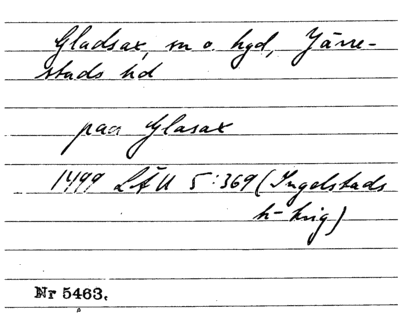 Gladsax, sn o. hgd, Järre-
stads hd
paa Glasax
1499 LÄU 5:369 (Ingelstads
h-krig)
Nr 5463.